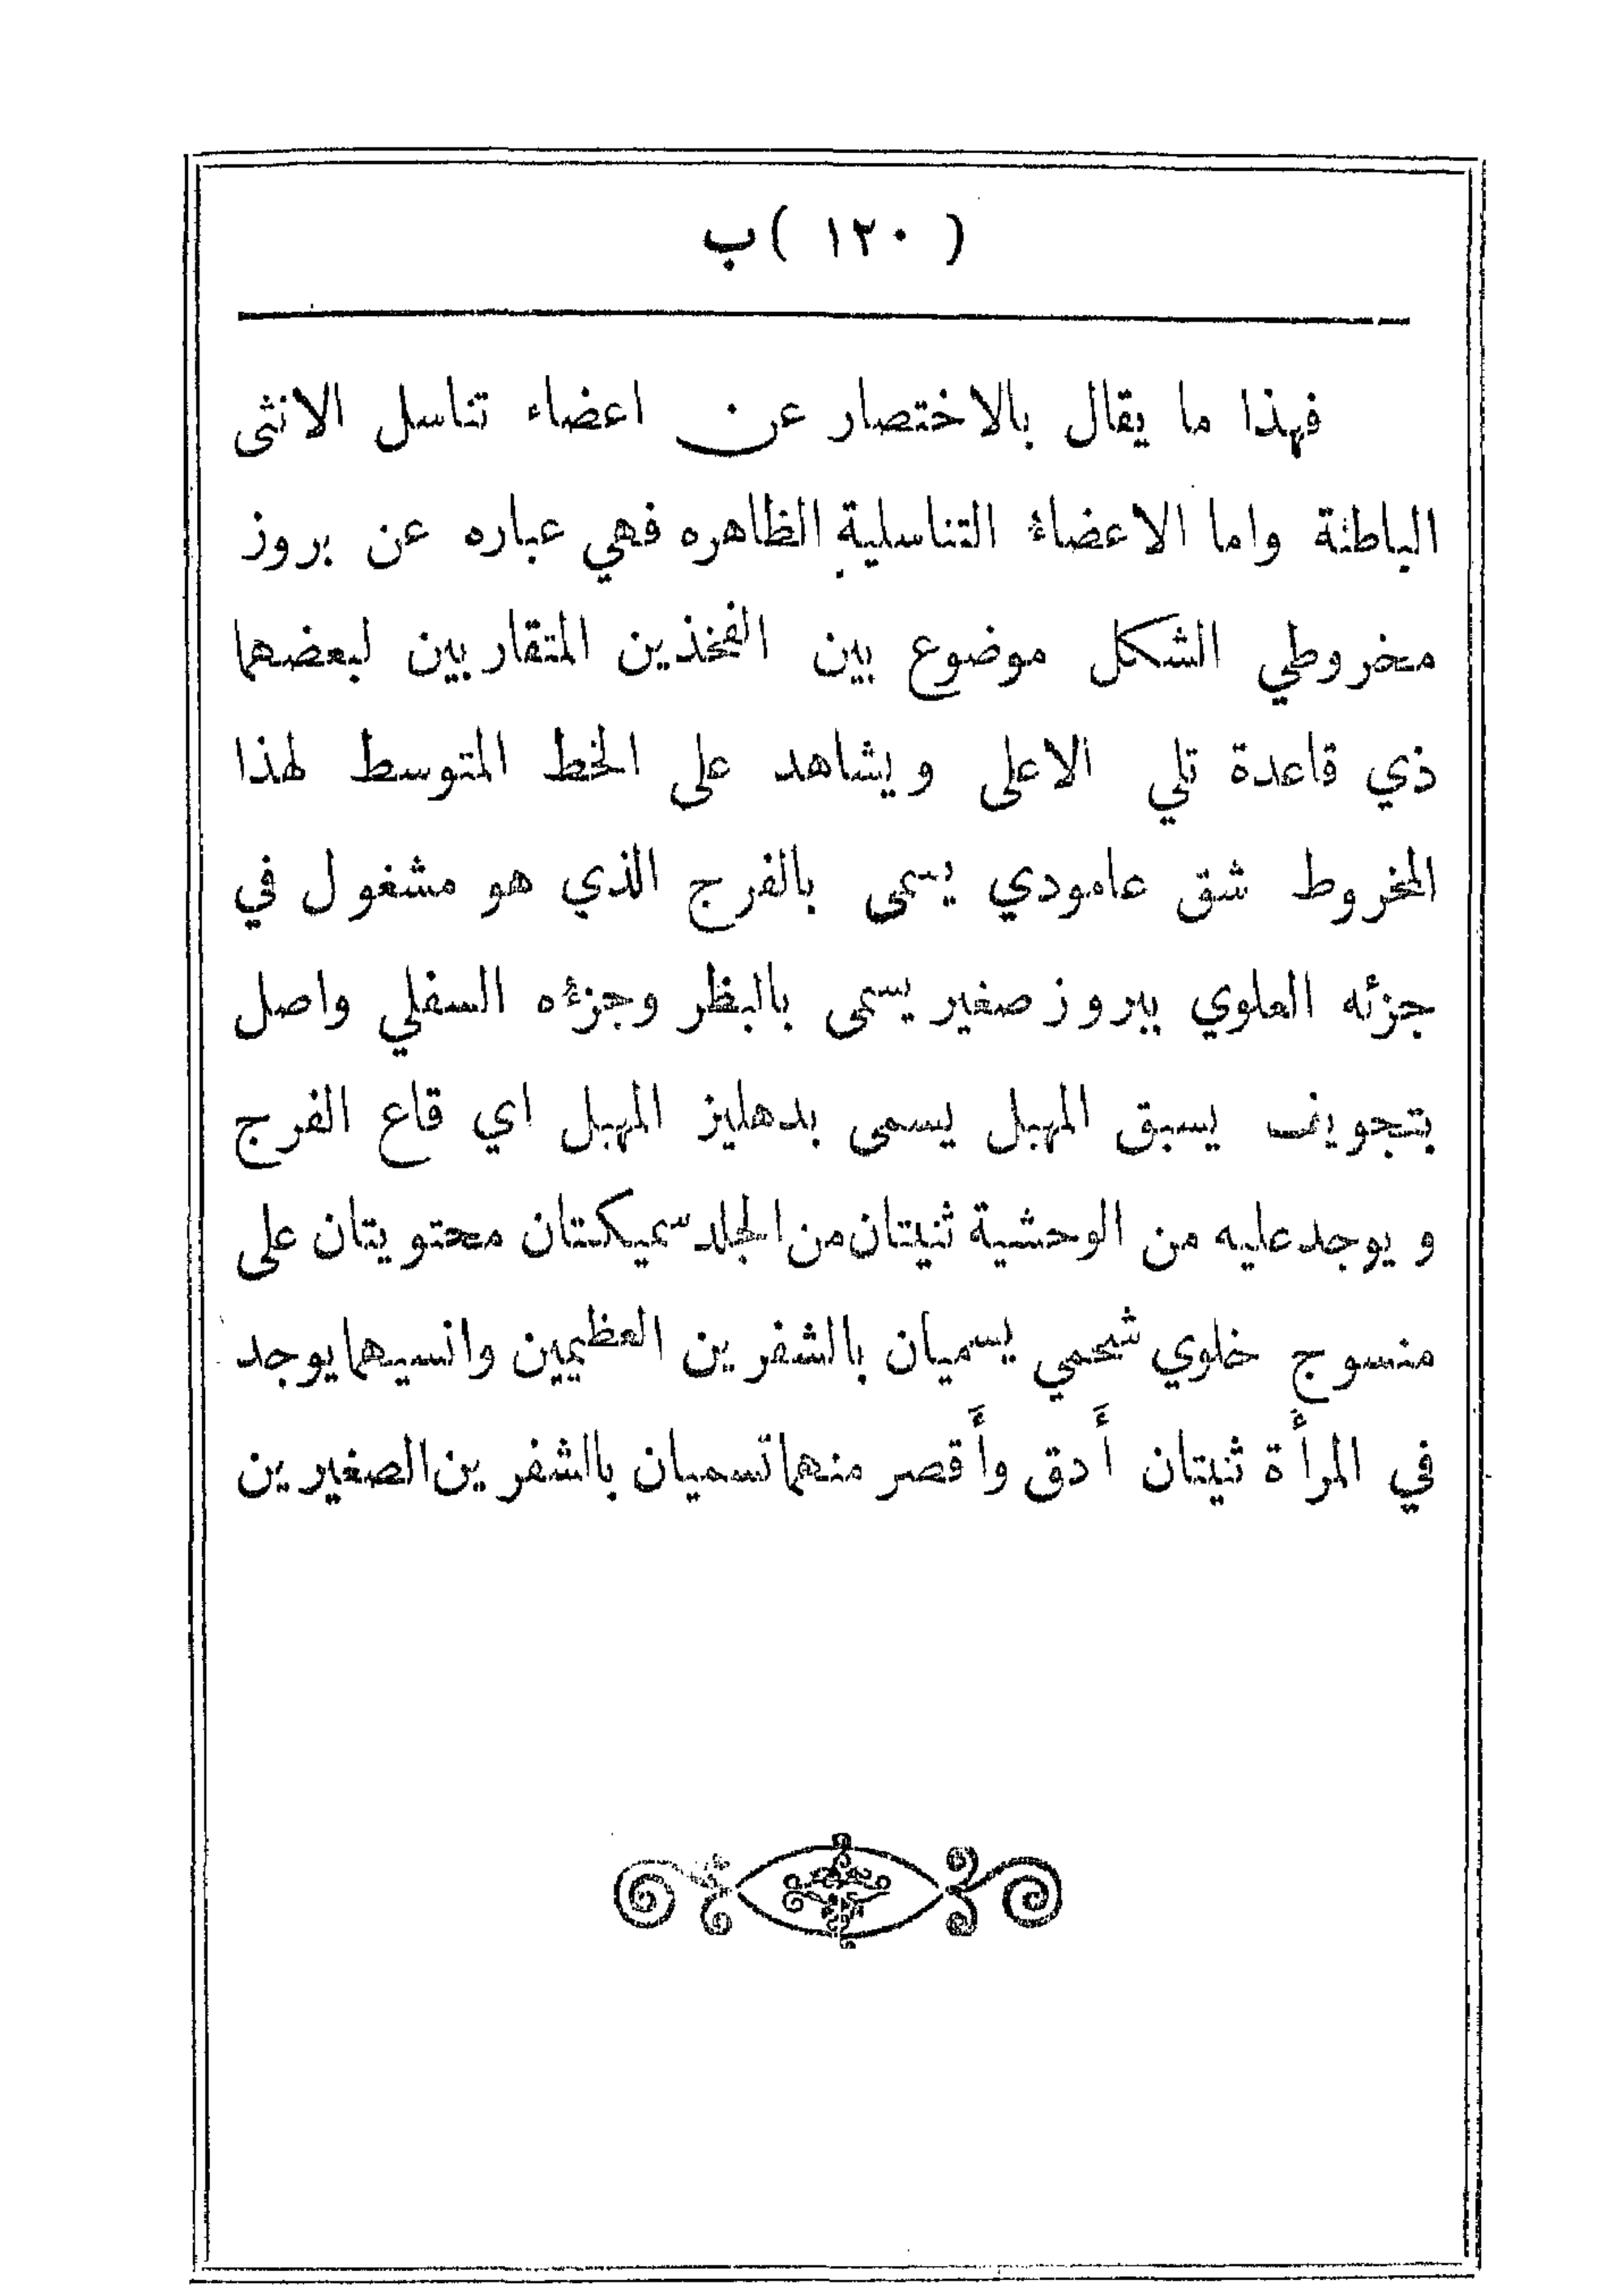 ( ١٢٠ ) ب
فهذا ما يقال بالاختصار عن اعضاء تناسل الانثى
الباطنة واما الاعضاء التناسلية الظاهره فهي عباره عن بروز
مخروطي الشكل موضوع بين الفخذين المتقاربين لبعضهما
ذي قاعدة تلي الاعلى ويشاهد على الخط المتوسط لهذا
المخروط شق عامودي يسمى بالفرج الذي هو مشغول في
جزئه العلوي ببروز صغير يسمى بالبظر وجزءه السفلي واصل
بتجويف يسبق المهبل يسمى بدهليز المهبل اي قاع الفرج
ويوجد عليه من الوحشية ثنيتان من الجلد سميكتان محتويتان على
منسوج خلوي شحمي يسميان بالشفرين العظيمين وانسيهما يوجد
في المرأة ثنيتان أدق وأقصر منهما تسميان بالشفرين الصغيرين